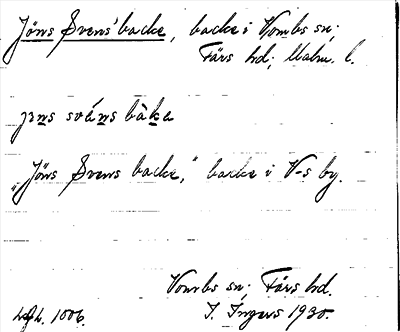 Jöns Svens' backe, backe i Vombs sn;
Färs hd; Malm. l.
sváns bàka
"Jöns Svens backe," backe i V-s by.
Vombs sn; Färs hd.
1006. I. Ingers 1930.